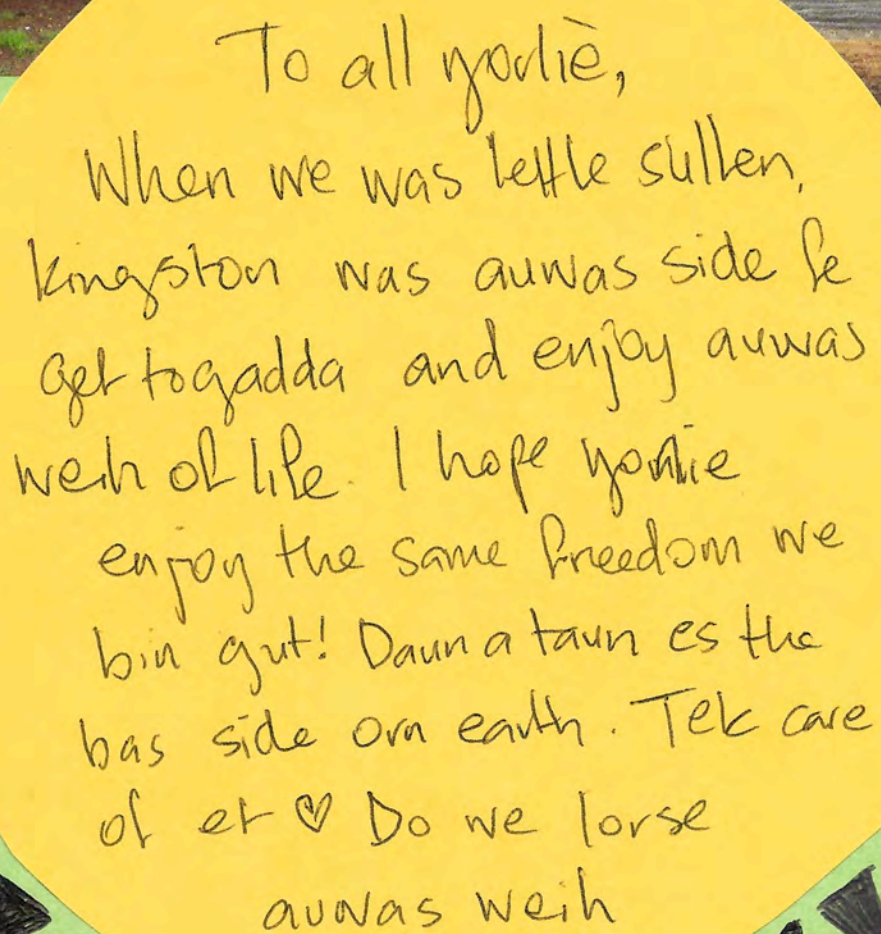 To all yorliè,
When we was lettle sullen,
kingston was auwas side fe
get togadda and enjoy auwas
weih of life. I hope yorlie
enjoy the same freedom we
bin gut! Daun a taun es the
bas side orn earth. Tek care
of et ♡ Do we lorse
auwas weih